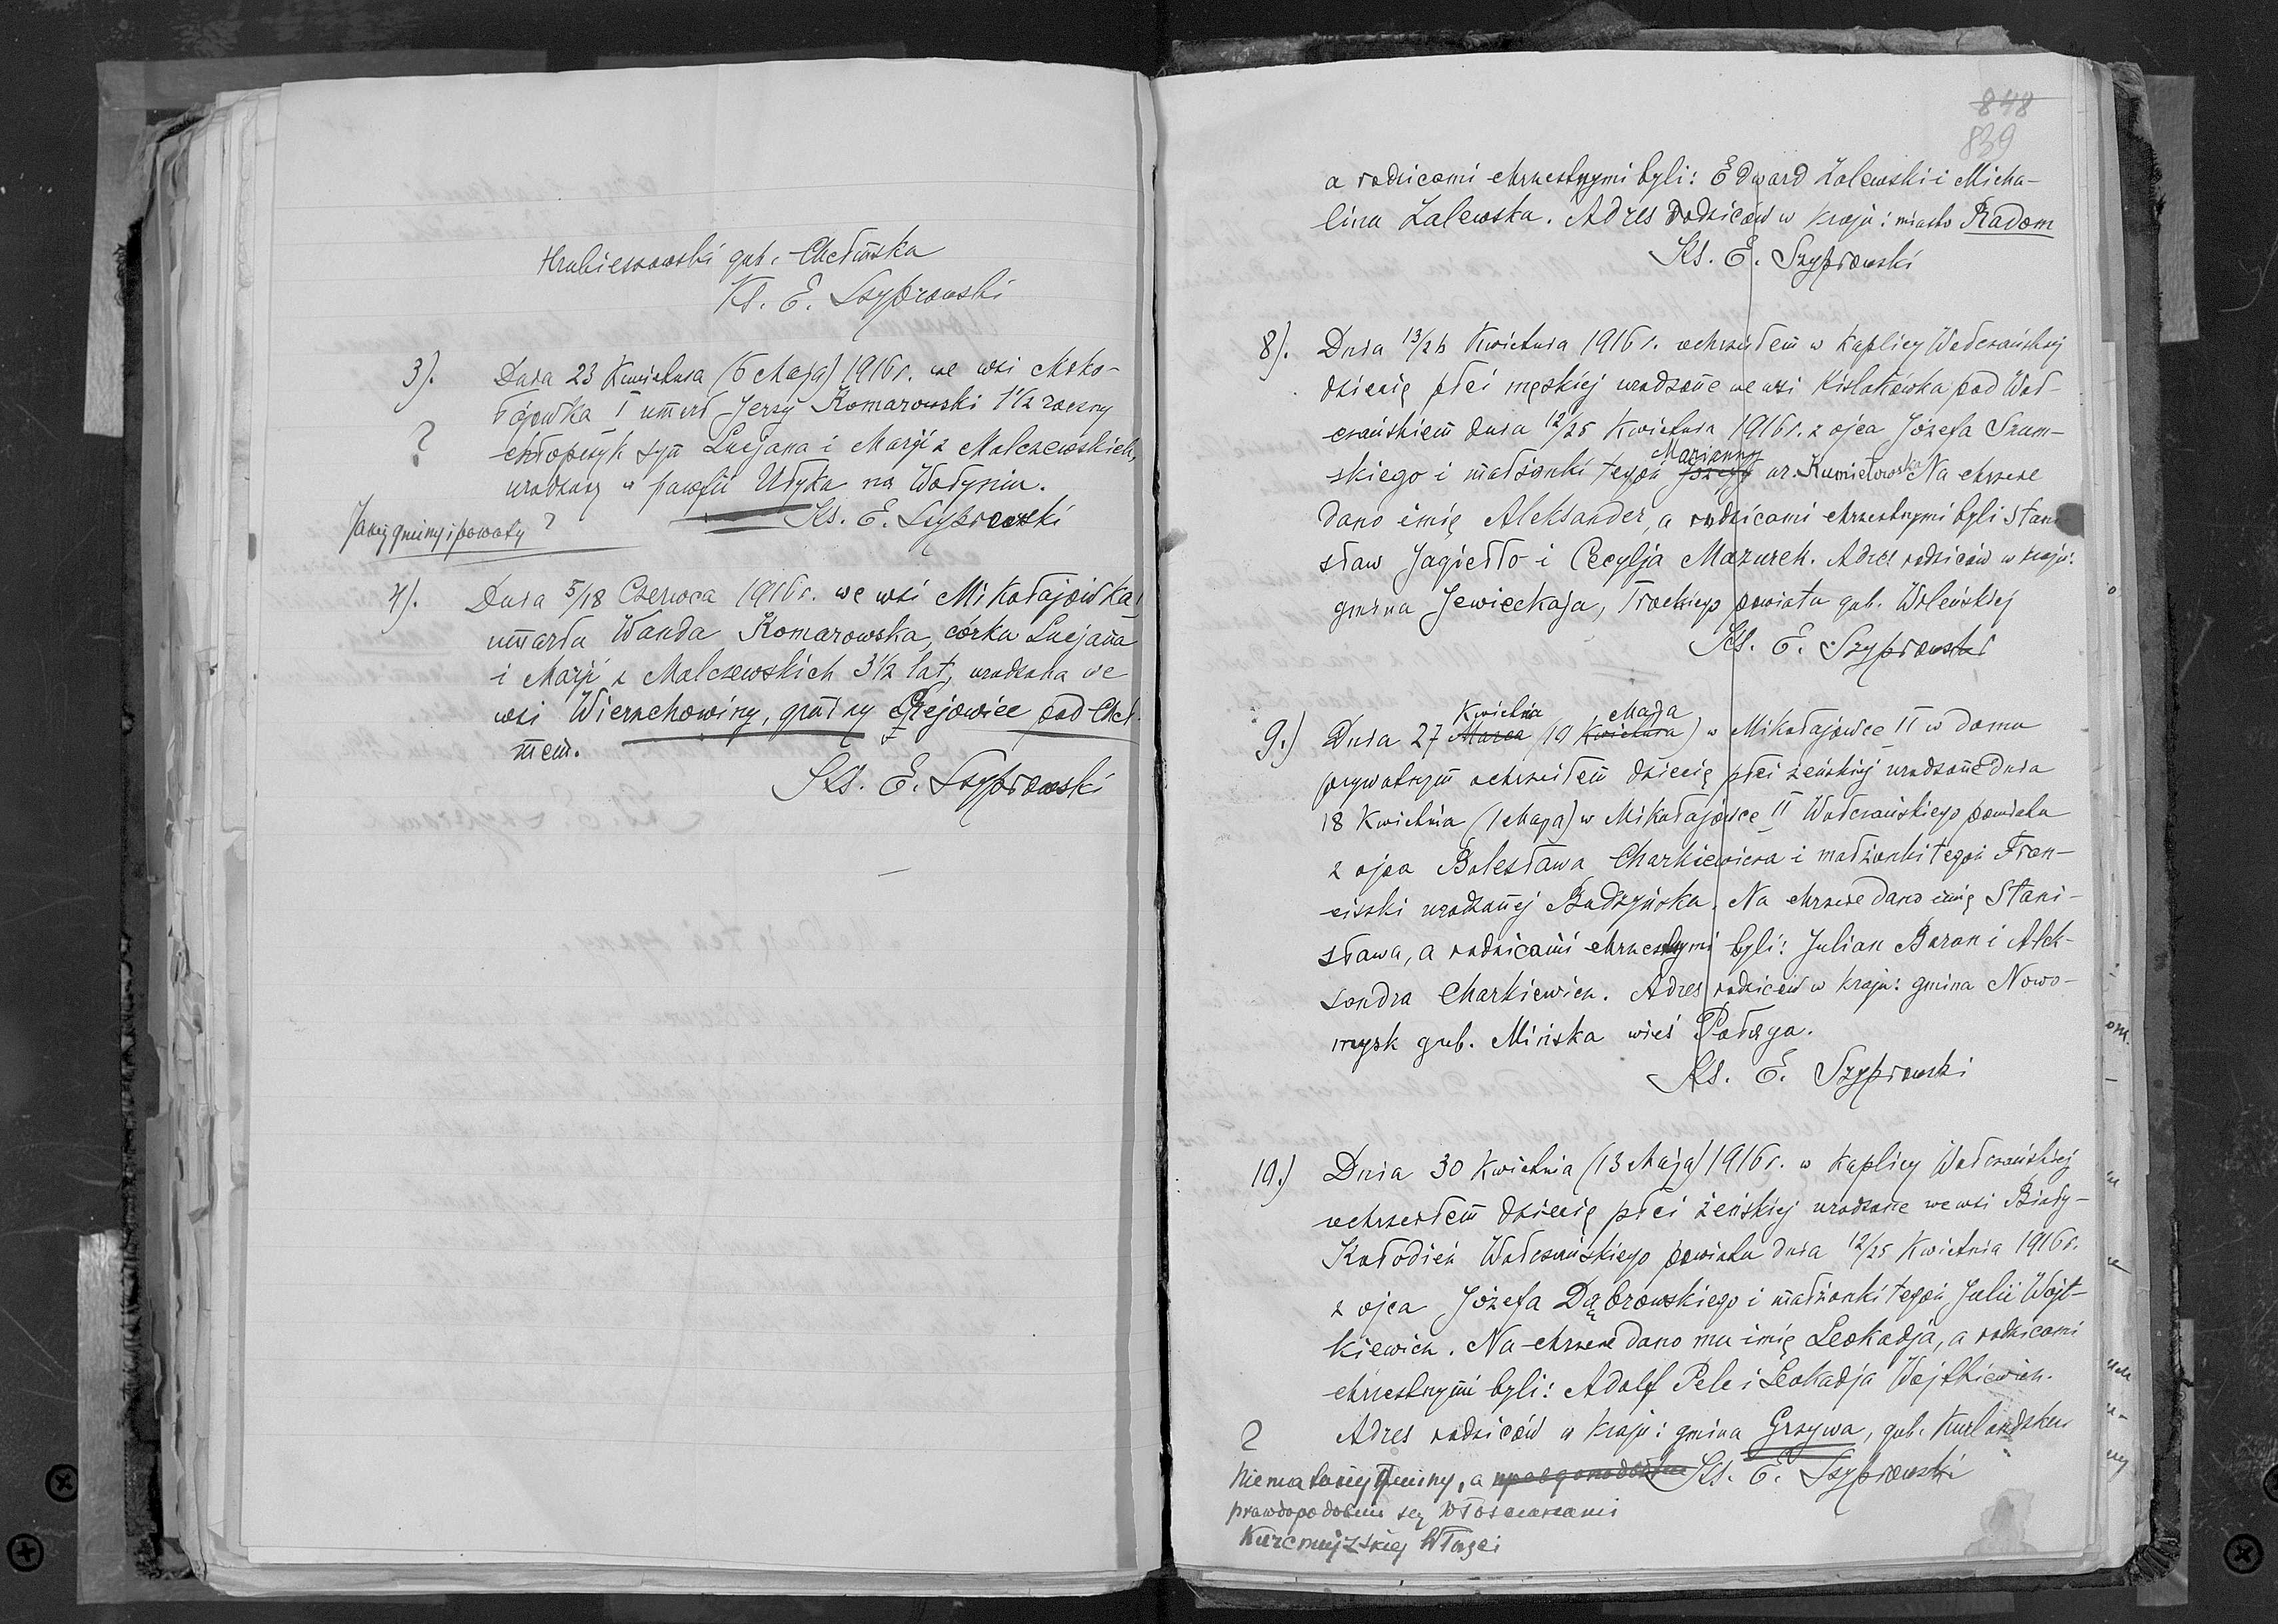 Hrubieszowski gub. Chełmska
Ks. E. Szyprowski
3). Dnia 23 Kwietnia (6 Maja) 1916 r. we wsi Miko-
łajówka I umarł Jerzy Komarowski 1½ roczny
? chłopczyk syn Lucjana i Marji z Malczewskich,
urodzony w parafii Udyka na Wołyniu.
Ks. E. Szyprowski
Jakiej gminy i powiatu ?
4). Dnia 5/18 Czerwca 1916 r. we wsi Mikołajówka I
umarła Wanda Komarowska, córka Lucjana
i Marji z Malczewskich 3½ lat, urodzona we
wsi Wierzchowiny, gminy Rejowiec pod Cheł-
mem.
Ks. E. Szyprowski
848
839
a rodzicami chrzestnymi byli: Edward Zalewski i Micha-
lina Zalewska. Adres rodziców w kraju: miasto Radom
Ks. E. Szyprowski
8). Dnia 13/26 Kwietnia 1916 r. ochrzciłem w kaplicy Wołczańskiej
dziecię płci męskiej urodzone we wsi Kisłakówka pod Woł-
czańskiem dnia 12/25 Kwietnia 1916 r. z ojca Józefa Szum-
skiego i małżonki tegoż Marianny ur. Kumielowska Na chrzcie
dano imię Aleksander, a rodzicami chrzestnymi byli Stani
sław Jagiełło i Cecylja Mazurek. Adres rodziców w kraju:
gmina Jewieckaja, Trockiego powiatu gub. Wileńskiej
Ks. E. Szyprowski
Kwietnia Maja
9.) Dnia 27 Marca (10 Kwietnia) w Mikołajówce II w domu
prywatnym ochrzciłem dziecię płci żeńskiej urodzone dnia
18 Kwietnia (1 Maja) w Mikołajówce II Wołczańskiego powiatu
z ojca Bolesława Charkiewicza i małżonki tegoż Fran-
ciszki urodzonej Budzyńska. Na chrzcie dano imię Stani-
sława, a rodzicami chrzestnymi byli: Julian Baran i Alek-
sandra Charkiewicz. Adres rodziców w kraju: gmina Nowo-
mysk gub. Mińska wieś Potarga.
Ks. E. Szyprowski
10.) Dnia 30 Kwietnia (13 Maja) 1916 r. w kaplicy Wołczańskiej
ochrzciłem dziecię płci żeńskiej urodzone we wsi Biały-
Kołodież Wołczańskiego powiatu dnia 12/25 Kwietnia 1916 r.
z ojca Józefa Dąbrowskiego i małżonki tegoż Julii Wojt-
kiewicz. Na chrzcie dano mu imię Leokadja, a rodzicami
chrzestnymi byli: Adolf Pele i Leokadja Wojtkiewicz.
? Adres rodziców w kraju: gmina Grzywa, gub. Kurlandzka
Ks. E. Szyprowski
Niema takiej gminy, a
prawdopodobnie są włościanami
Kurcmujżskiej Włości